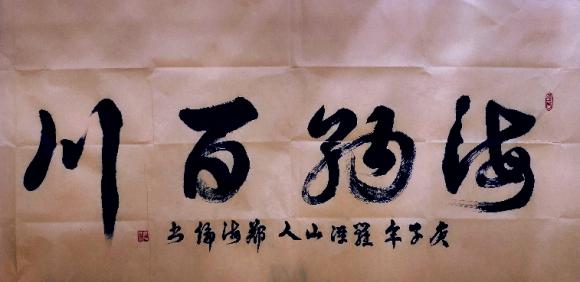 海纳百川
庚子年罗浮山人郑海涛书